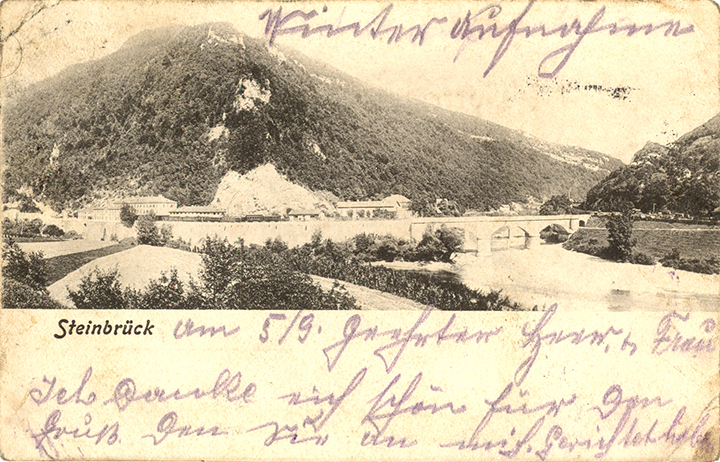 Winter aufnahme
Steinbrück am 5/9. Geehrter Herr, u Frau
Ich Danke eich schön für Den
Gruß Den Sie an mich Gerichtet habe